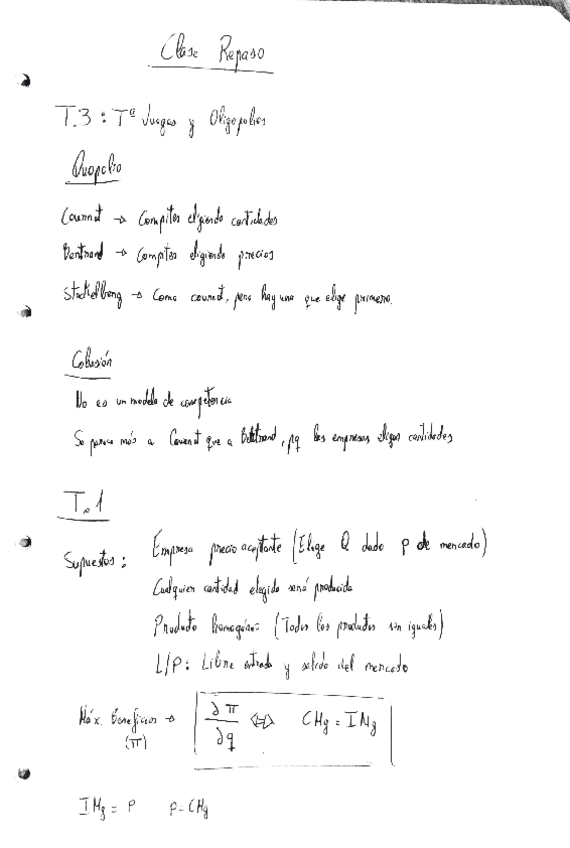 Clase Repaso
T.3: Tª Juegos y Oligopolios
Duopolio
Cournot → Compiten eligiendo cantidades
Bertrand → Compiten eligiendo precios
Stackelberg → Como cournot, pero hay una que elige primero.
Colusión
No es un modelo de competencia
Se parece más a Cournot que a Bertrand, pq las empresas eligen cantidades
T.1
Supuestos: Empresa precio aceptante (Elige Q dado p de mercado)
Cualquier cantidad elegida será producida
Producto homogéneo (Todos los productos son iguales)
L/P: Libre entrada y salida del mercado
Máx. Beneficios → ∂π/∂q ⇔ CMg = IMg
(π)
IMg = P p=CMg